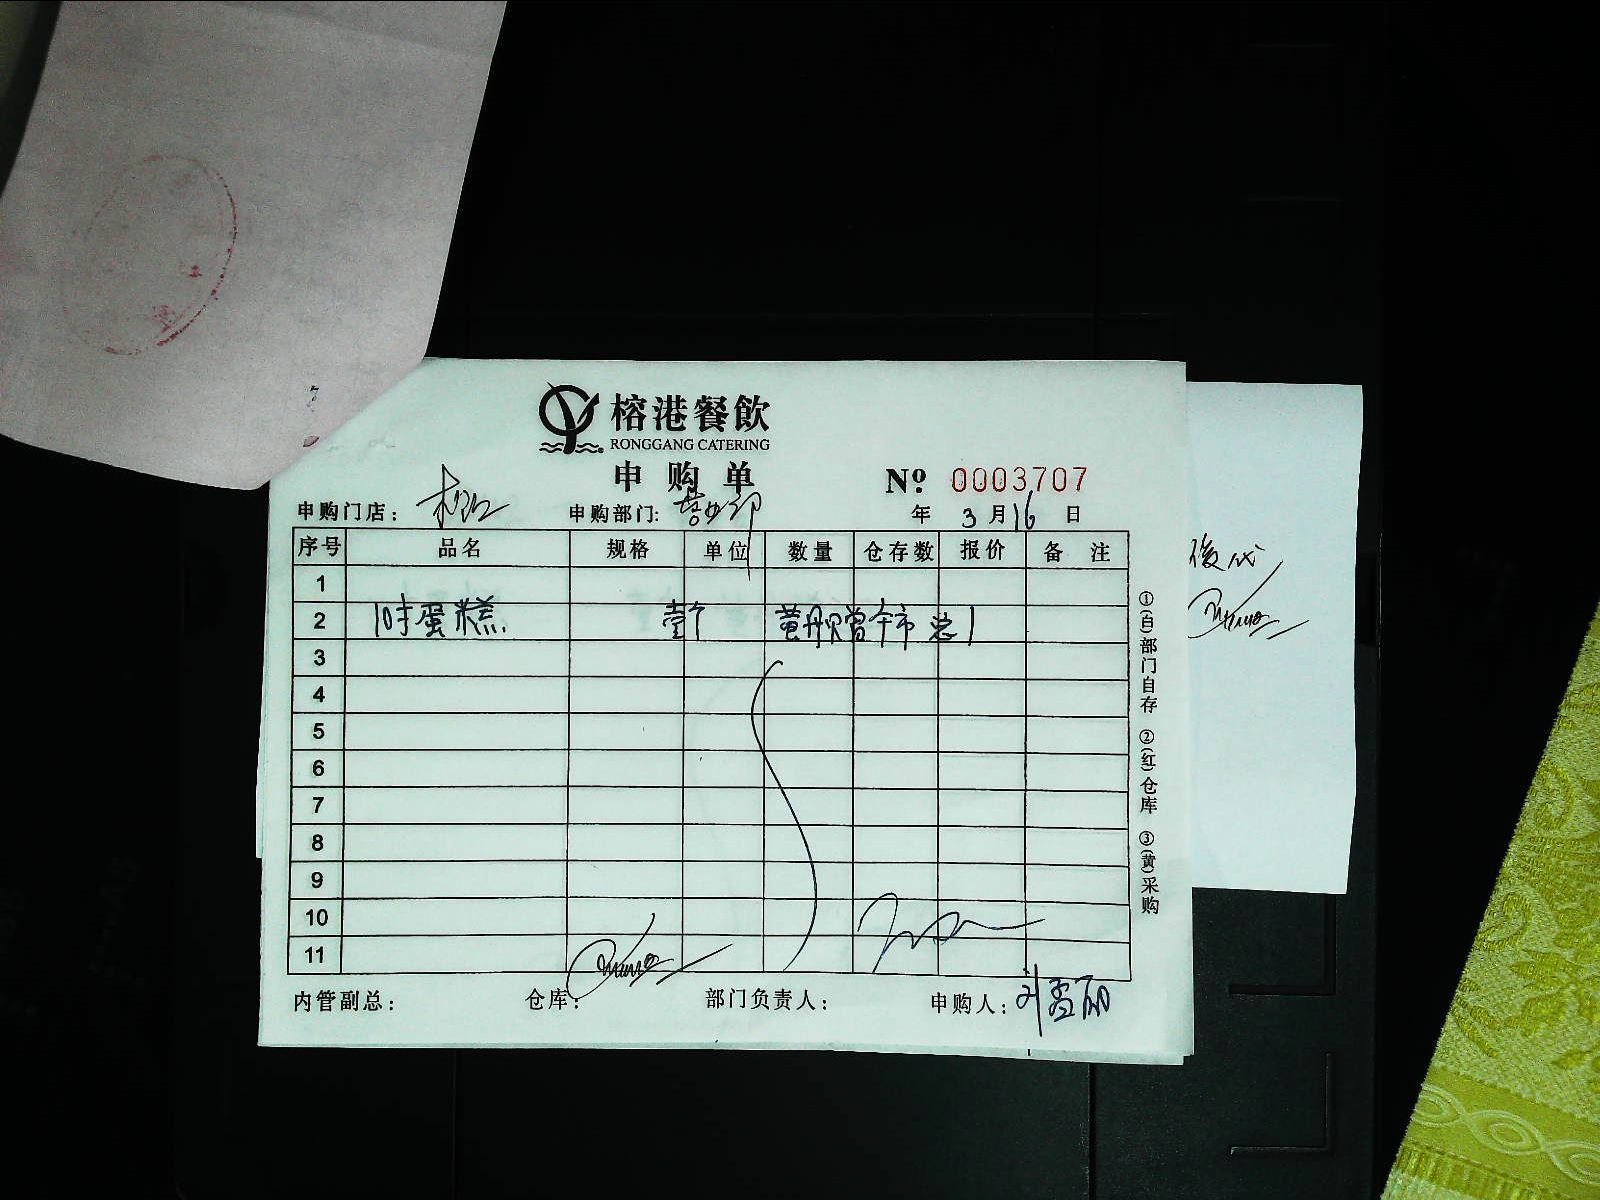 榕港餐飲
RONGGANG CATERING
申购单
Nº 0003707
申购门店： 申购部门: 营业部 年 3 月 16 日
序号 品名 规格 单位 数量 仓存数 报价 备 注
1
2 10寸蛋糕 壹个
3
4
5
6
7
8
9
10
11
内管副总： 仓库： 部门负责人： 申购人：
①(白)部门自存 ②(红)仓库 ③(黄)采购